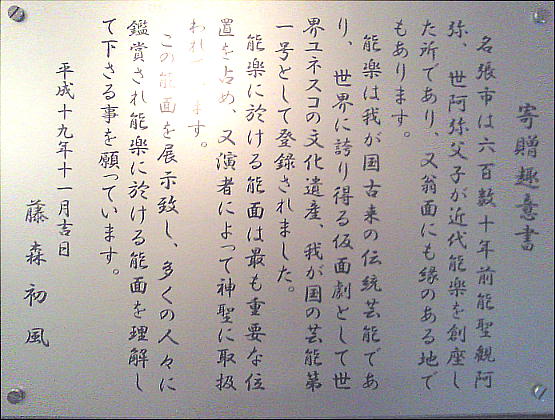 寄贈趣意書
名張市は六百数十年前能聖観阿
弥、世阿弥父子が近代能楽を創座し
た所であり、又翁面にも縁のある地で
もあります。
能楽は我が国古来の伝統芸能であ
り、世界に誇り得る仮面劇として世
界ユネスコの文化遺産、我が国の芸能第
一号として登録されました。
能楽に於ける能面は最も重要な位
置を占め、又演者によって神聖に取扱
われています。
この能面を展示致し、多くの人々に
鑑賞され能楽に於ける能面を理解し
て下さる事を願っています。
平成十九年十一月吉日
藤森初風